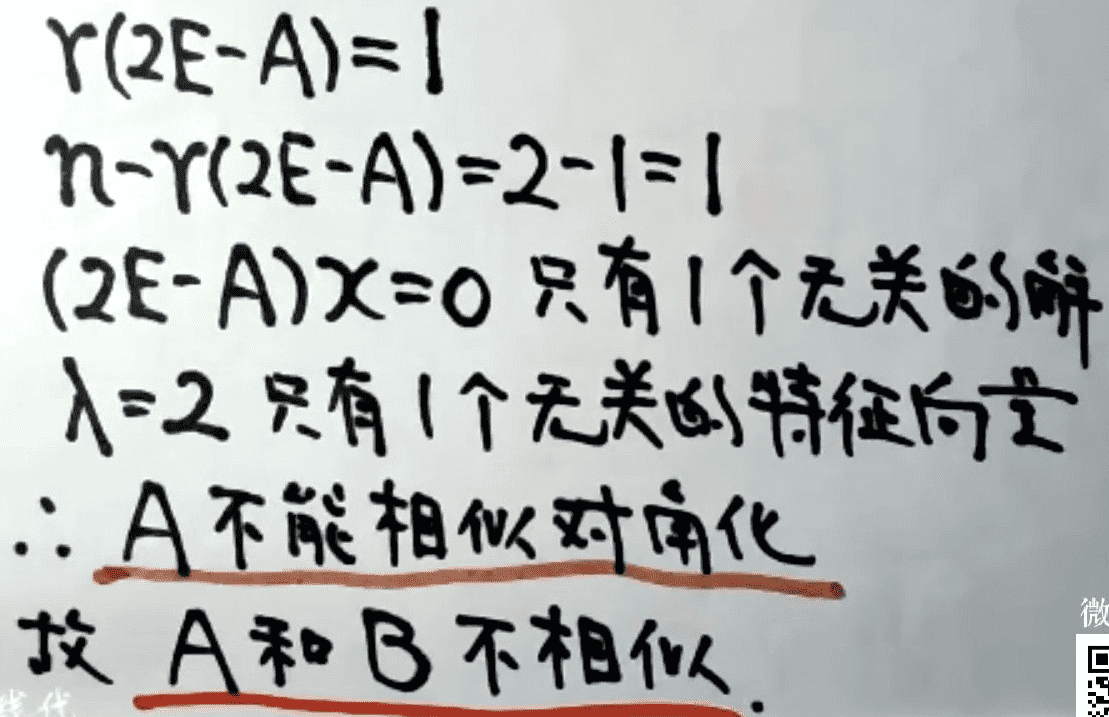 r(2E-A)=1
n-r(2E-A)=2-1=1
(2E-A)x=0 只有1个无关的解
λ=2 只有1个无关的特征向量
∴ A不能相似对角化
故 A和B不相似.
微
线代